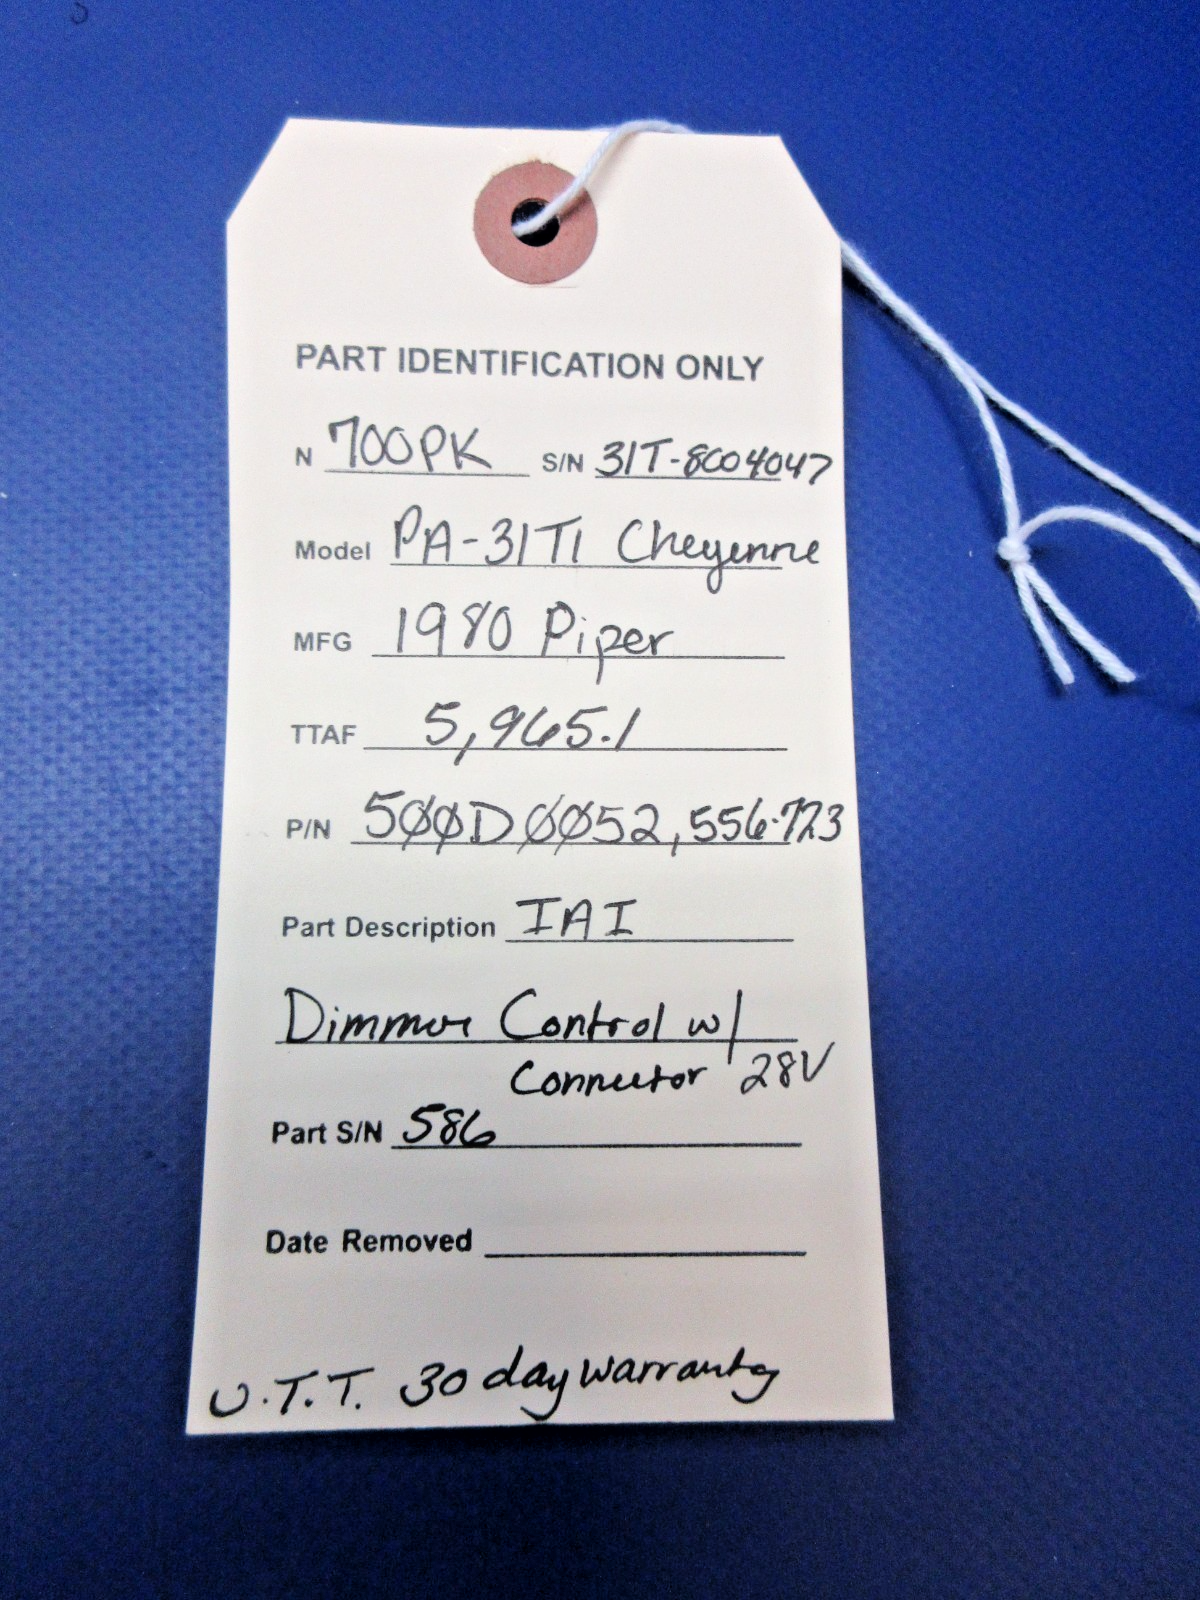 PART IDENTIFICATION ONLY
N 700PK S/N 31T-8004047
Model PA-31T1 Cheyenne
MFG 1980 Piper
TTAF 5,965.1
P/N 5ØØDØØ52, 556-723
Part Description IAI
Dimmer Control w/
Connector 28V
Part S/N 586
Date Removed
U.T.T. 30 day warranty